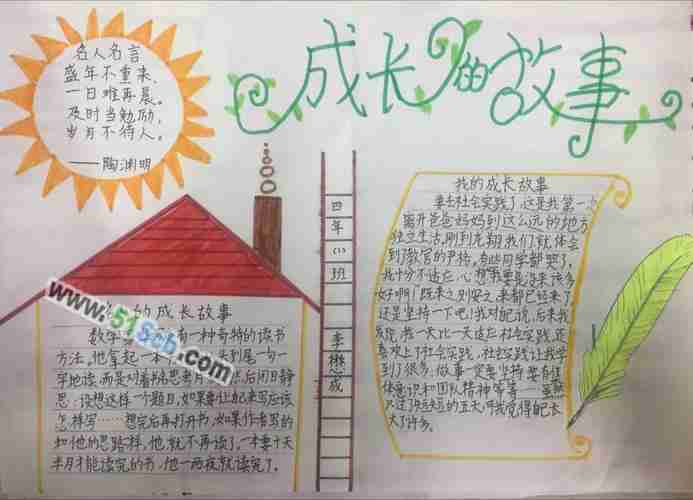 名人名言
盛年不重来，
一日难再晨。
及时当勉励，
岁月不待人。
——陶渊明
成长的故事
四年(二)班
李懋成
www.51Scb.com
的成长故事
数学 有一种奇特的读书
方法，他拿起一本 从头到尾一句一
字地读，而是对着书名思考片 然后闭目静
思：设想这样一个题目，如果要让起来写应该
怎样写……想完后再打开书，如果作者写的
和他的思路一样，他就不再读了，一本要十天
半月才能读完的书，他一两夜就读完了。
我的成长故事
要去社会实践了，这是我第一次
离开爸爸妈妈到这么远的地方
独立生活，刚到龙翔我们就体会
到了教官的严格，有些同学都哭了，
我十分不适应，心想:要是没来该多
好啊！既来之则安之，来都已经来了
还是坚持一下吧！我对自己说，后来我
发现，我一天比一天适应社会实践，逐
喜欢上了社会实践，社会实践让我学
到了很多，做事一定要坚持，要有
体意识和团队精神等等……虽然
只过了短短的五天，可我觉得自己长
大了许多。